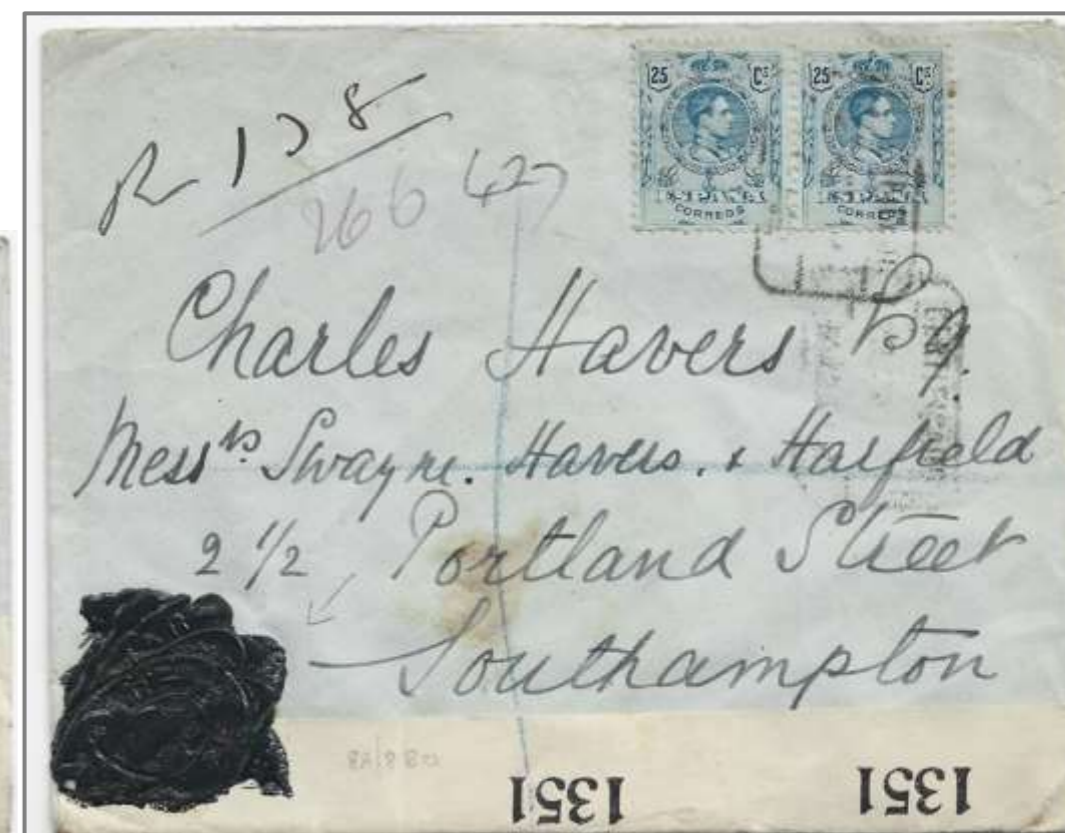 25 Cs 25 Cs
CORREOS CORREOS
R 138
266 427
Charles Havers Esq.
Messrs Swayne. Havers. & Harfield
2 1/2 Portland Street
Southampton
1351 1351